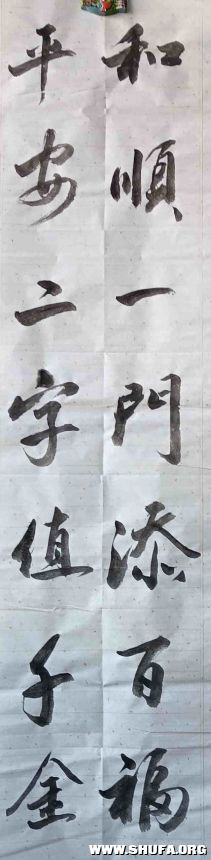 和順一門添百福
平安二字值千金
WWW.SHUFA.ORG